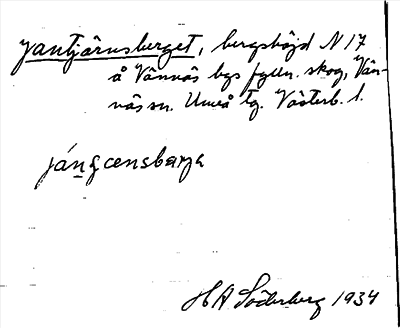 Jantjärnsberget, bergshöjd N 17
å Vännäs bys fylln. skog, Vän-
näs sn. Umeå tg. Västerb. l.
H A Söderberg 1934